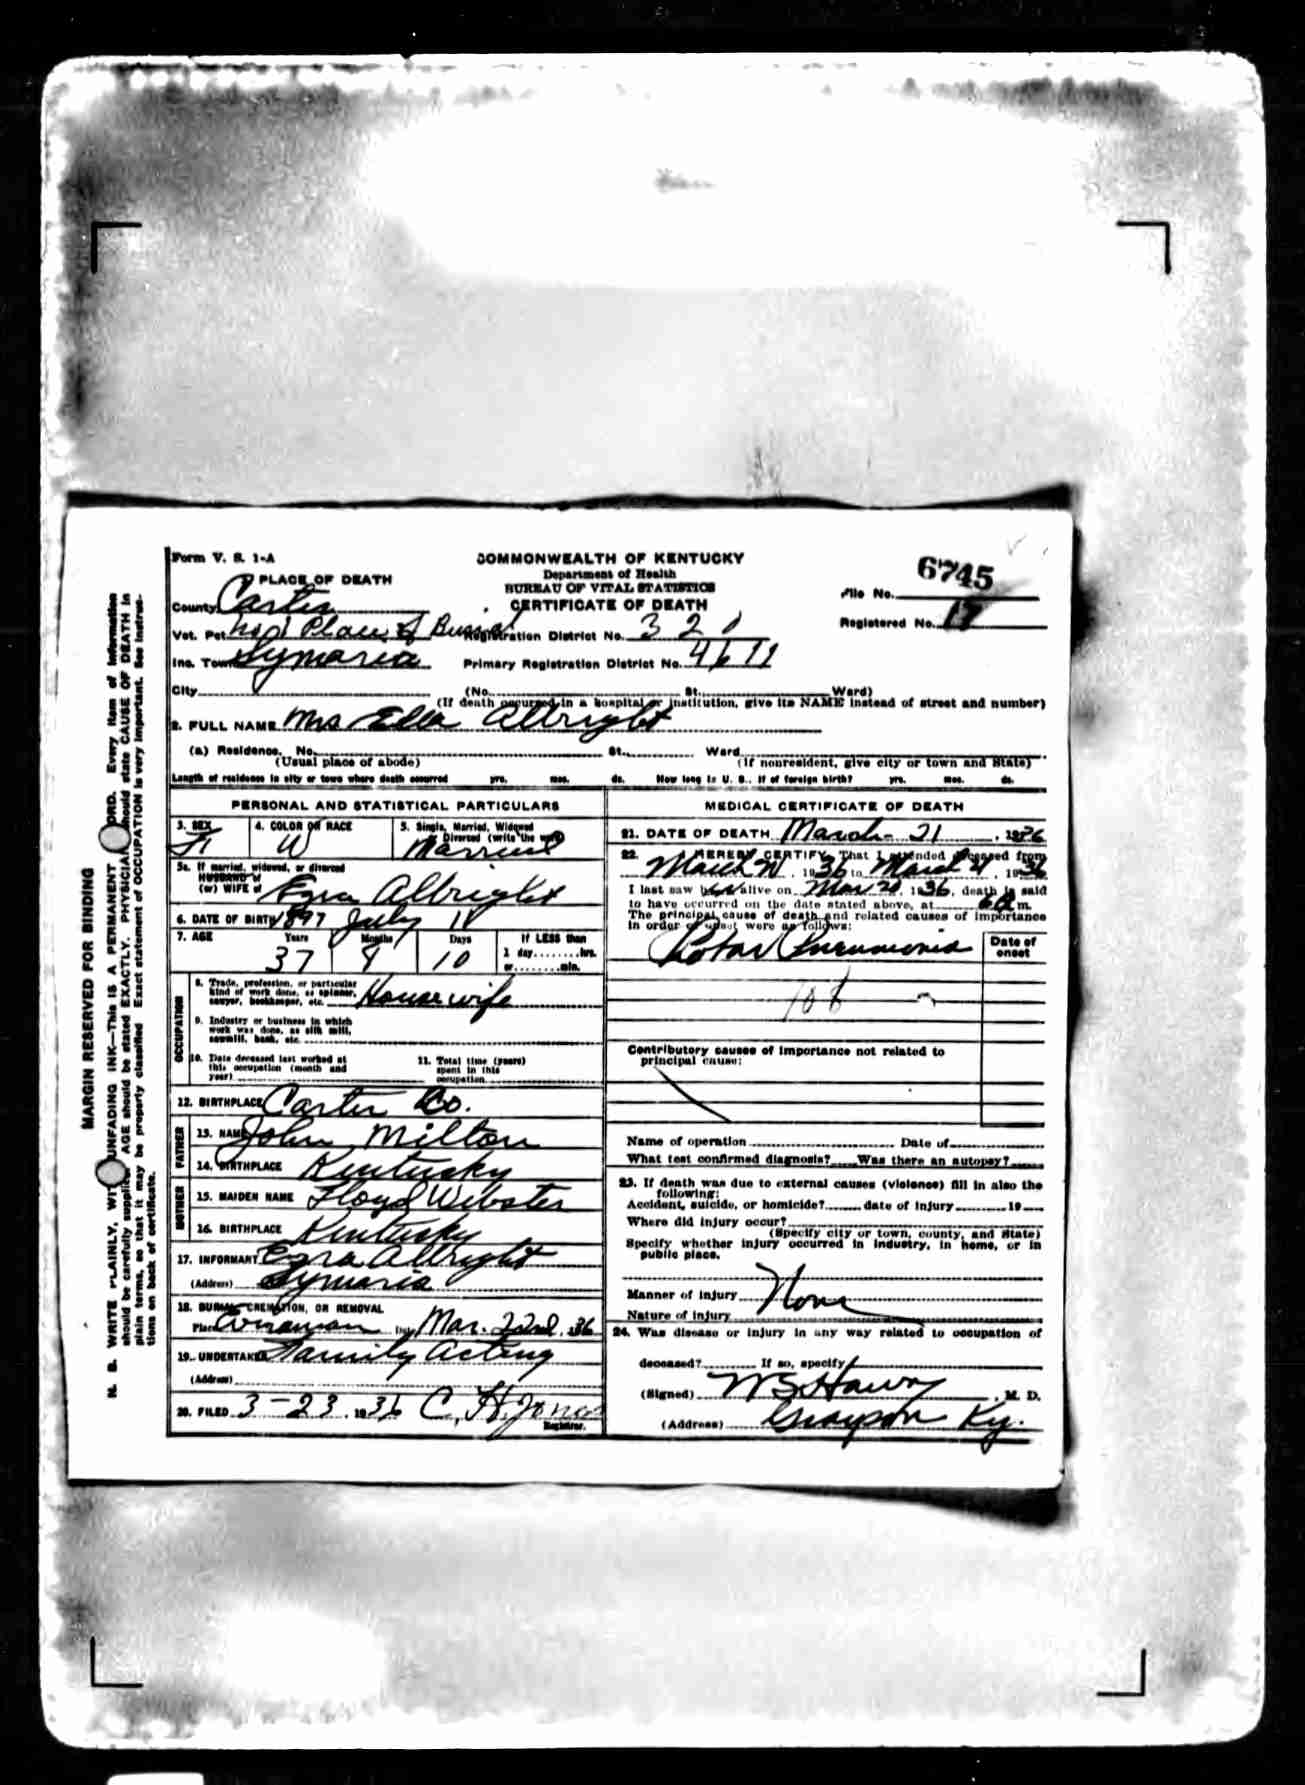 Form V. S. 1-A
COMMONWEALTH OF KENTUCKY
Department of Health
BUREAU OF VITAL STATISTICS
CERTIFICATE OF DEATH
6745
File No.
Registered No. 17
PLACE OF DEATH
County Carter
Vot. Pct. No 1 Place of
Registration District No. 320
Inc. Town Symaria
Primary Registration District No.
City (No. St. Ward)
(If death occurred in a hospital or institution, give its NAME instead of street and number)
2. FULL NAME Mrs Ella Albright
(a) Residence. No. St. Ward
(Usual place of abode) (If nonresident, give city or town and State)
Length of residence in city or town where death occurred yrs. mos. ds. How long in U. S., if of foreign birth? yrs. mos. ds.
PERSONAL AND STATISTICAL PARTICULARS
3. SEX 4. COLOR OR RACE 5. Single, Married, Widowed
or Divorced (write the word)
F W Married
5a. If married, widowed, or divorced
HUSBAND of
(or) WIFE of Ezra Albright
6. DATE OF BIRTH 1897 July
7. AGE Years Months Days If LESS than
1 day........hrs.
or........min.
37 8 10
OCCUPATION
8. Trade, profession, or particular
kind of work done, as spinner,
sawyer, bookkeeper, etc. House wife
9. Industry or business in which
work was done, as silk mill,
sawmill, bank, etc.
10. Date deceased last worked at
this occupation (month and
year)
11. Total time (years)
spent in this
occupation
12. BIRTHPLACE Carter Co.
FATHER
13. NAME John Milton
14. BIRTHPLACE Kentucky
MOTHER
15. MAIDEN NAME Floyd Webster
16. BIRTHPLACE Kentucky
17. INFORMANT Ezra Albright
(Address) Symaria
18. BURIAL, CREMATION, OR REMOVAL
Place Date Mar. 22nd, 1936
19. UNDERTAKER Family Acting
(Address)
20. FILED 3-23, 1936 C. H. Jones
Registrar.
MEDICAL CERTIFICATE OF DEATH
21. DATE OF DEATH March 21, 1936
22. I HEREBY CERTIFY, That I attended deceased from
March , 1936 to March 21, 1936
I last saw her alive on Mar 20, 1936, death is said
to have occurred on the date stated above, at 6 a m.
The principal cause of death and related causes of importance
in order of onset were as follows:
Date of
onset
Lobar Pneumonia
108
Contributory causes of importance not related to
principal cause:
Name of operation Date of
What test confirmed diagnosis? Was there an autopsy?
23. If death was due to external causes (violence) fill in also the
following:
Accident, suicide, or homicide? date of injury 19
Where did injury occur?
(Specify city or town, county, and State)
Specify whether injury occurred in industry, in home, or in
public place.
Manner of injury None
Nature of injury
24. Was disease or injury in any way related to occupation of
deceased? If so, specify
(Signed) , M. D.
(Address) Grayson Ky.
MARGIN RESERVED FOR BINDING
N. B. WRITE PLAINLY, WITH UNFADING INK—THIS IS A PERMANENT RECORD. Every item of information
should be carefully supplied. AGE should be stated EXACTLY. PHYSICIANS should state CAUSE OF DEATH in
plain terms, so that it may be properly classified. Exact statement of OCCUPATION is very important. See instruc-
tions on back of certificate.